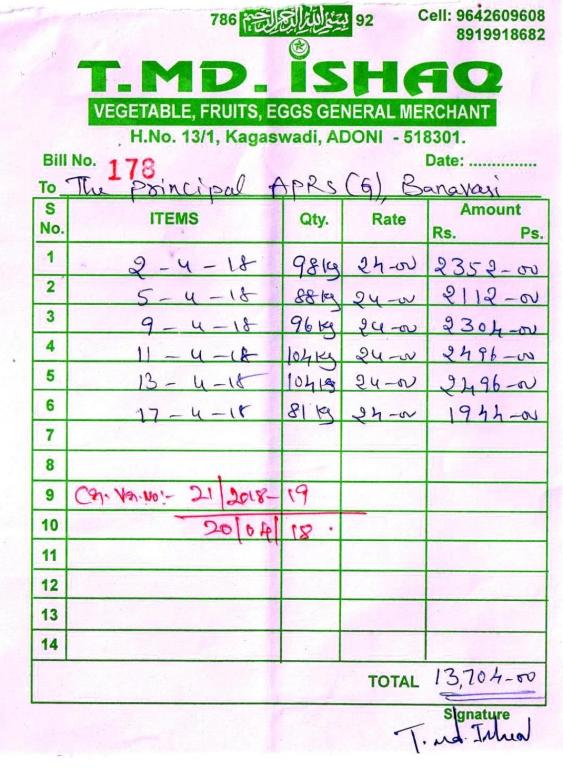 786 بسم الله الرحمن الرحيم 92
Cell: 9642609608
8919918682
T.MD. ISHAQ
VEGETABLE, FRUITS, EGGS GENERAL MERCHANT
H.No. 13/1, Kagaswadi, ADONI - 518301.
Bill No. 178 Date: ...............
To The Principal APRS (G), Banavasi
S No. ITEMS Qty. Rate Amount Rs. Ps.
1 2-4-18 98kg 24-00 2352-00
2 5-4-18 88kg 24-00 2112-00
3 9-4-18 96kg 24-00 2304-00
4 11-4-18 104kg 24-00 2496-00
5 13-4-18 104kg 24-00 2496-00
6 17-4-18 81kg 24-00 1944-00
7
8
9 21/2018-19
10 20/04/18.
11
12
13
14
TOTAL 13,704-00
Signature
T.md. Ishaq